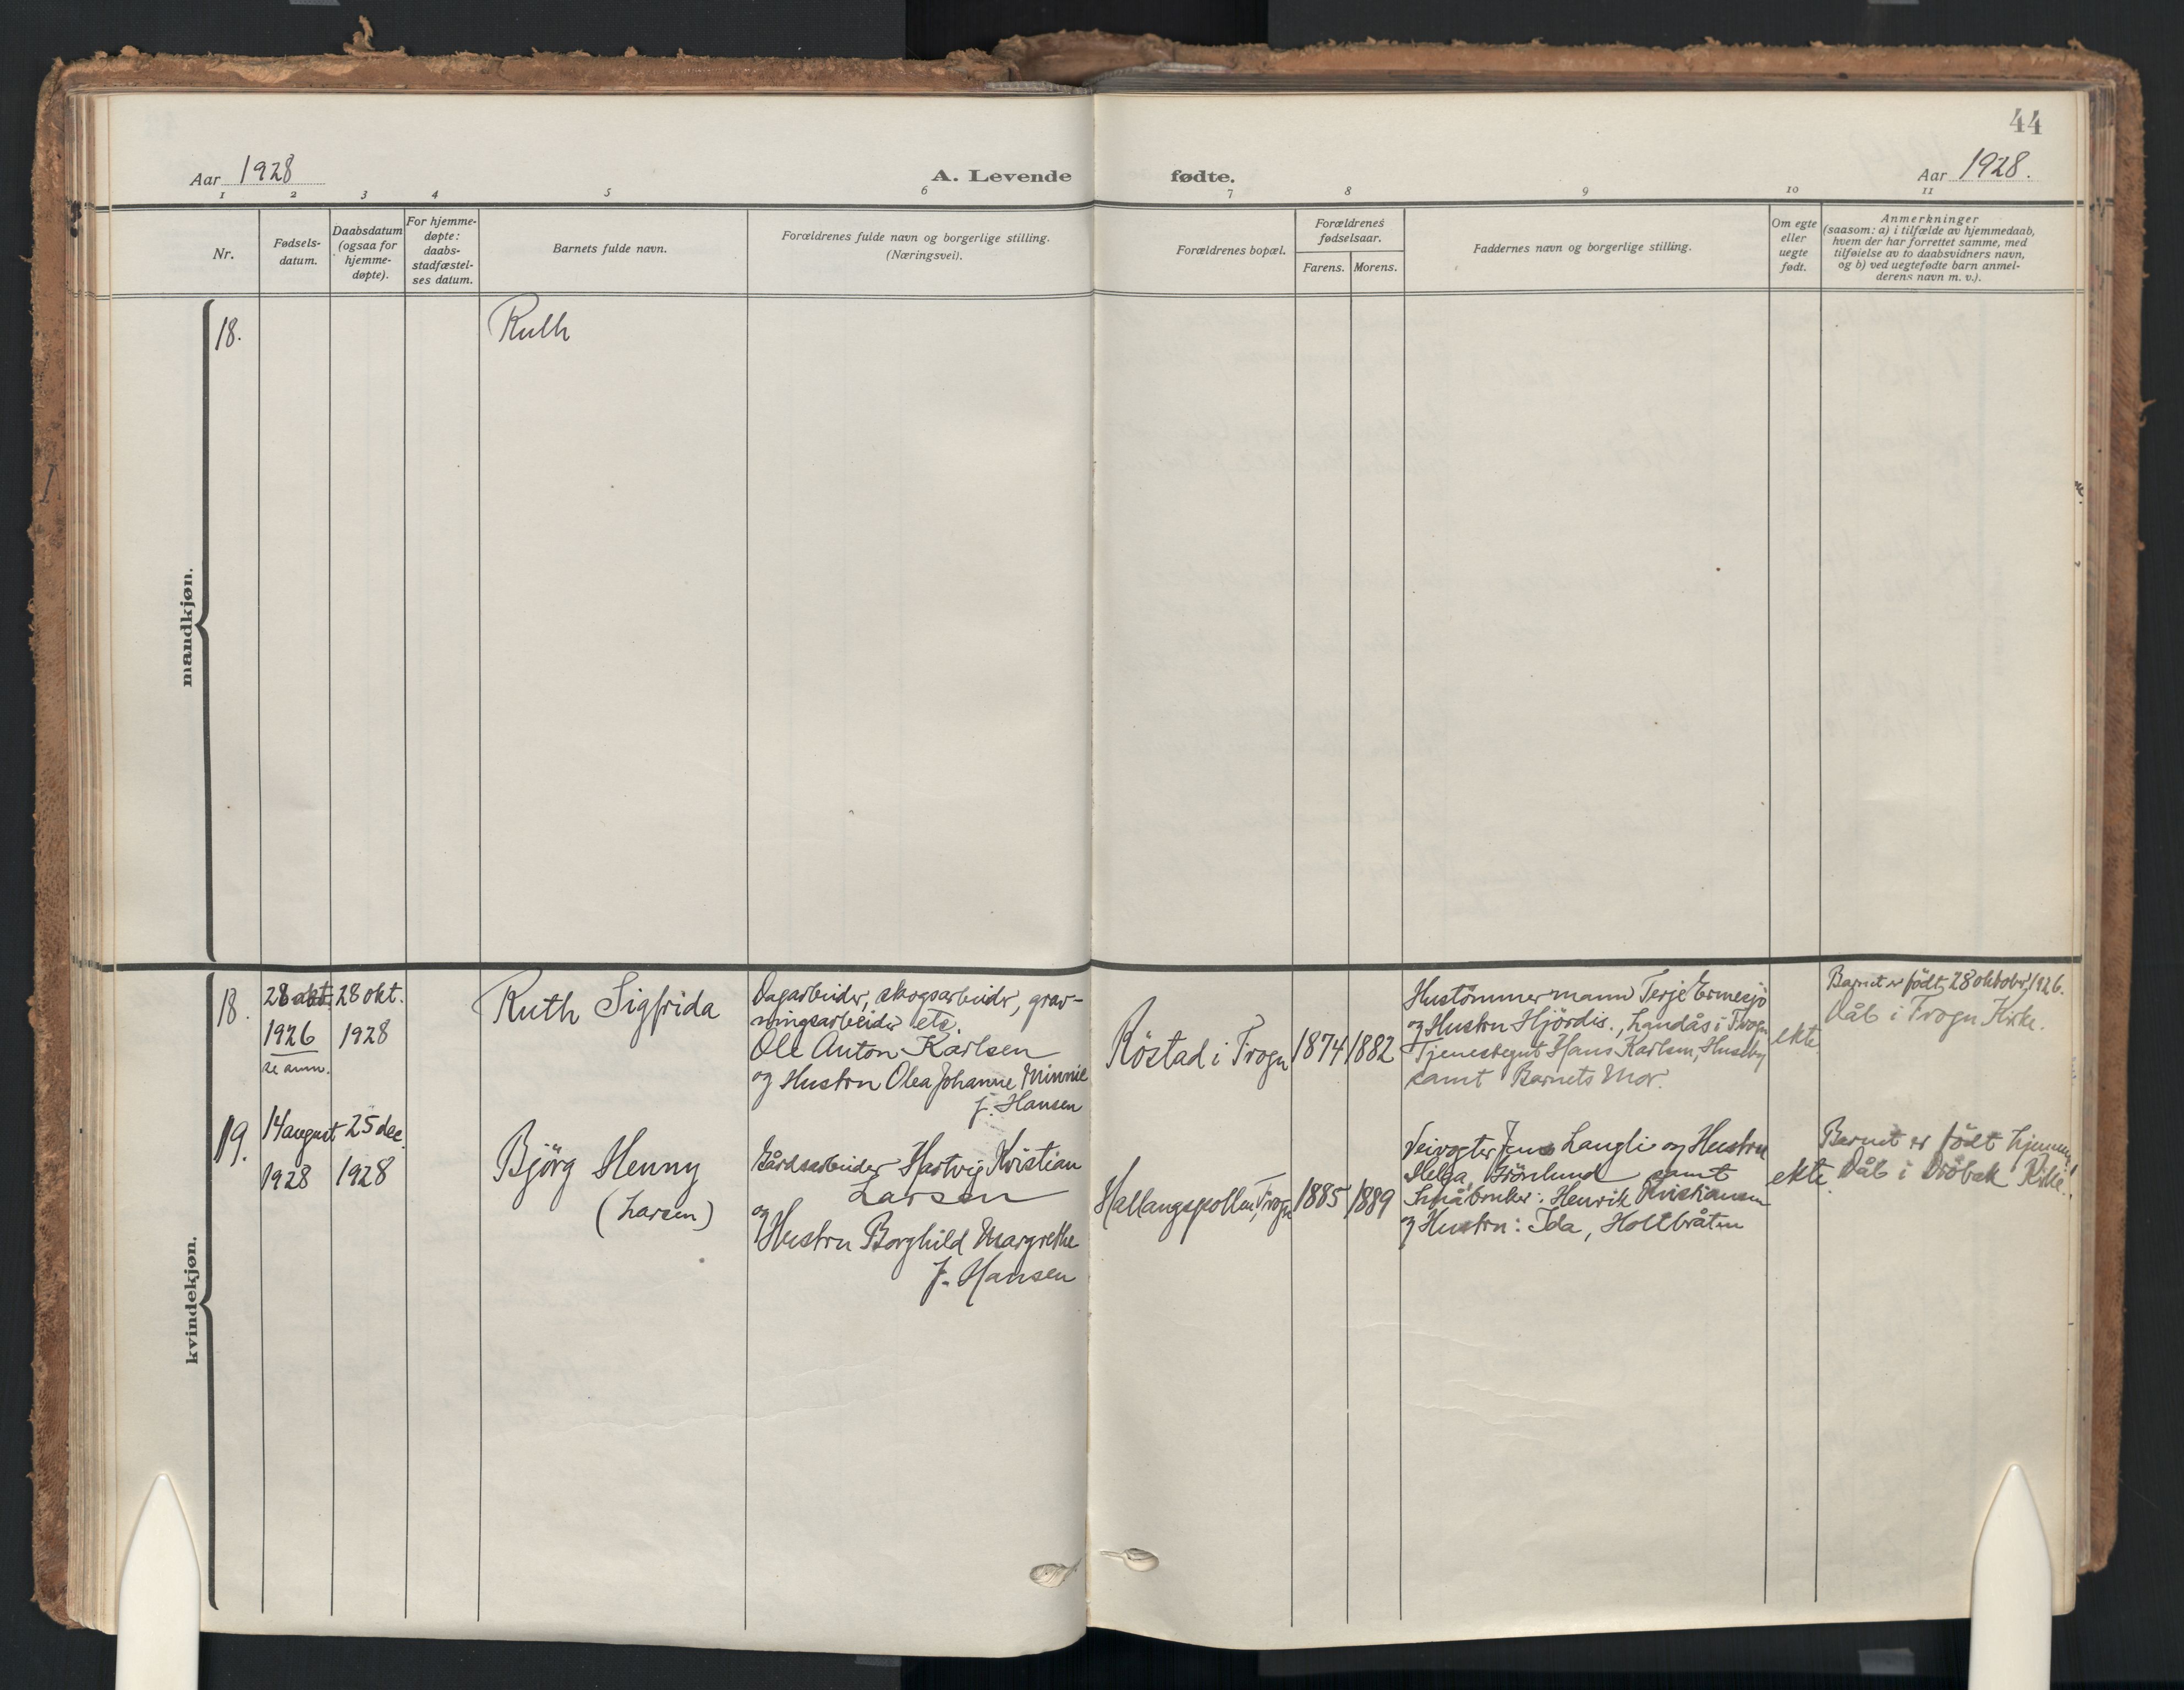 44
Aar 1928
A. Levende fødte.
Aar 1928.
1 2 3 4 5 6 7 8 9 10 11
Nr.
Fødsels-
datum.
Daabsdatum
(ogsaa for
hjemme-
døpte).
For hjemme-
døpte:
daabs-
stadfæstel-
ses datum.
Barnets fulde navn.
Forældrenes fulde navn og borgerlige stilling.
(Næringsvei).
Forældrenes bopæl.
Forældrenes
fødselsaar.
Farens. Morens.
Faddernes navn og borgerlige stilling.
Om egte
eller
uegte
født.
Anmerkninger
(saasom: a) i tilfælde av hjemmedaab,
hvem der har forrettet samme, med
tilføielse av to daabsvidners navn,
og b) ved uegtefødte barn anmel-
derens navn m. v.).
mandkjøn.
18.
Ruth
kvindekjøn.
18.
28 okt.
1926
se anm.
28 okt.
1928
Ruth Sigfrida
Dagarbeider, skogsarbeider, grav-
ningsarbeider etc.
Ole Anton Karlsen
og Hustru Olea Johanne Minnie
f. Hansen
Röstad i Frogn
1874
1882
Hustömmermann Terje Ermesjö
og Hustru Hjördis., Landås i Frogn
Tjenestegut Hans Karlsen, Huseby
samt Barnets Mor.
ekte
Barnet er födt 28 oktober 1926.
Dåb i Frogn Kirke.
19.
14 august
1928
25 dec.
1928
Björg Henny
(Larsen)
Gårdsarbeider Hartvig Kristian
Larsen
og
Hustru Borghild Margrethe
f. Hansen
Hallangspollen, Frogn
1885
1889
Veivogter Jens Langli og Hustru
Helga, Grönlund samt
Småbruker: Henrik Kristiansen
og Hustru: Ida, Holtbråten
ekte.
Barnet er födt hjemme!
Dåb i Dröbak Kirke!